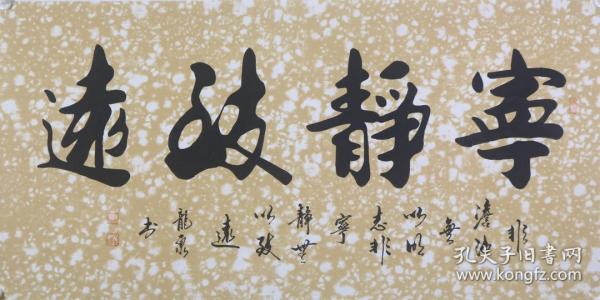 寧靜致遠
非
澹泊
無
以明
志非
寧
靜無
以致
遠
龍泉
书
孔夫子旧书网
www.kongfz.com